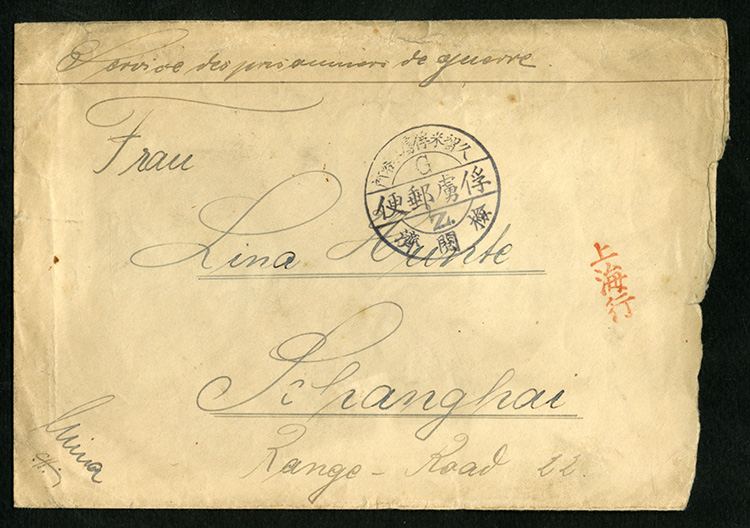 Service des prisonniers de guerre.
Frau
Lina Hunte
Schanghai
Range-Road 22.
China
久留米俘虜所
G
俘虜郵便
Z.
檢閲濟
上海行